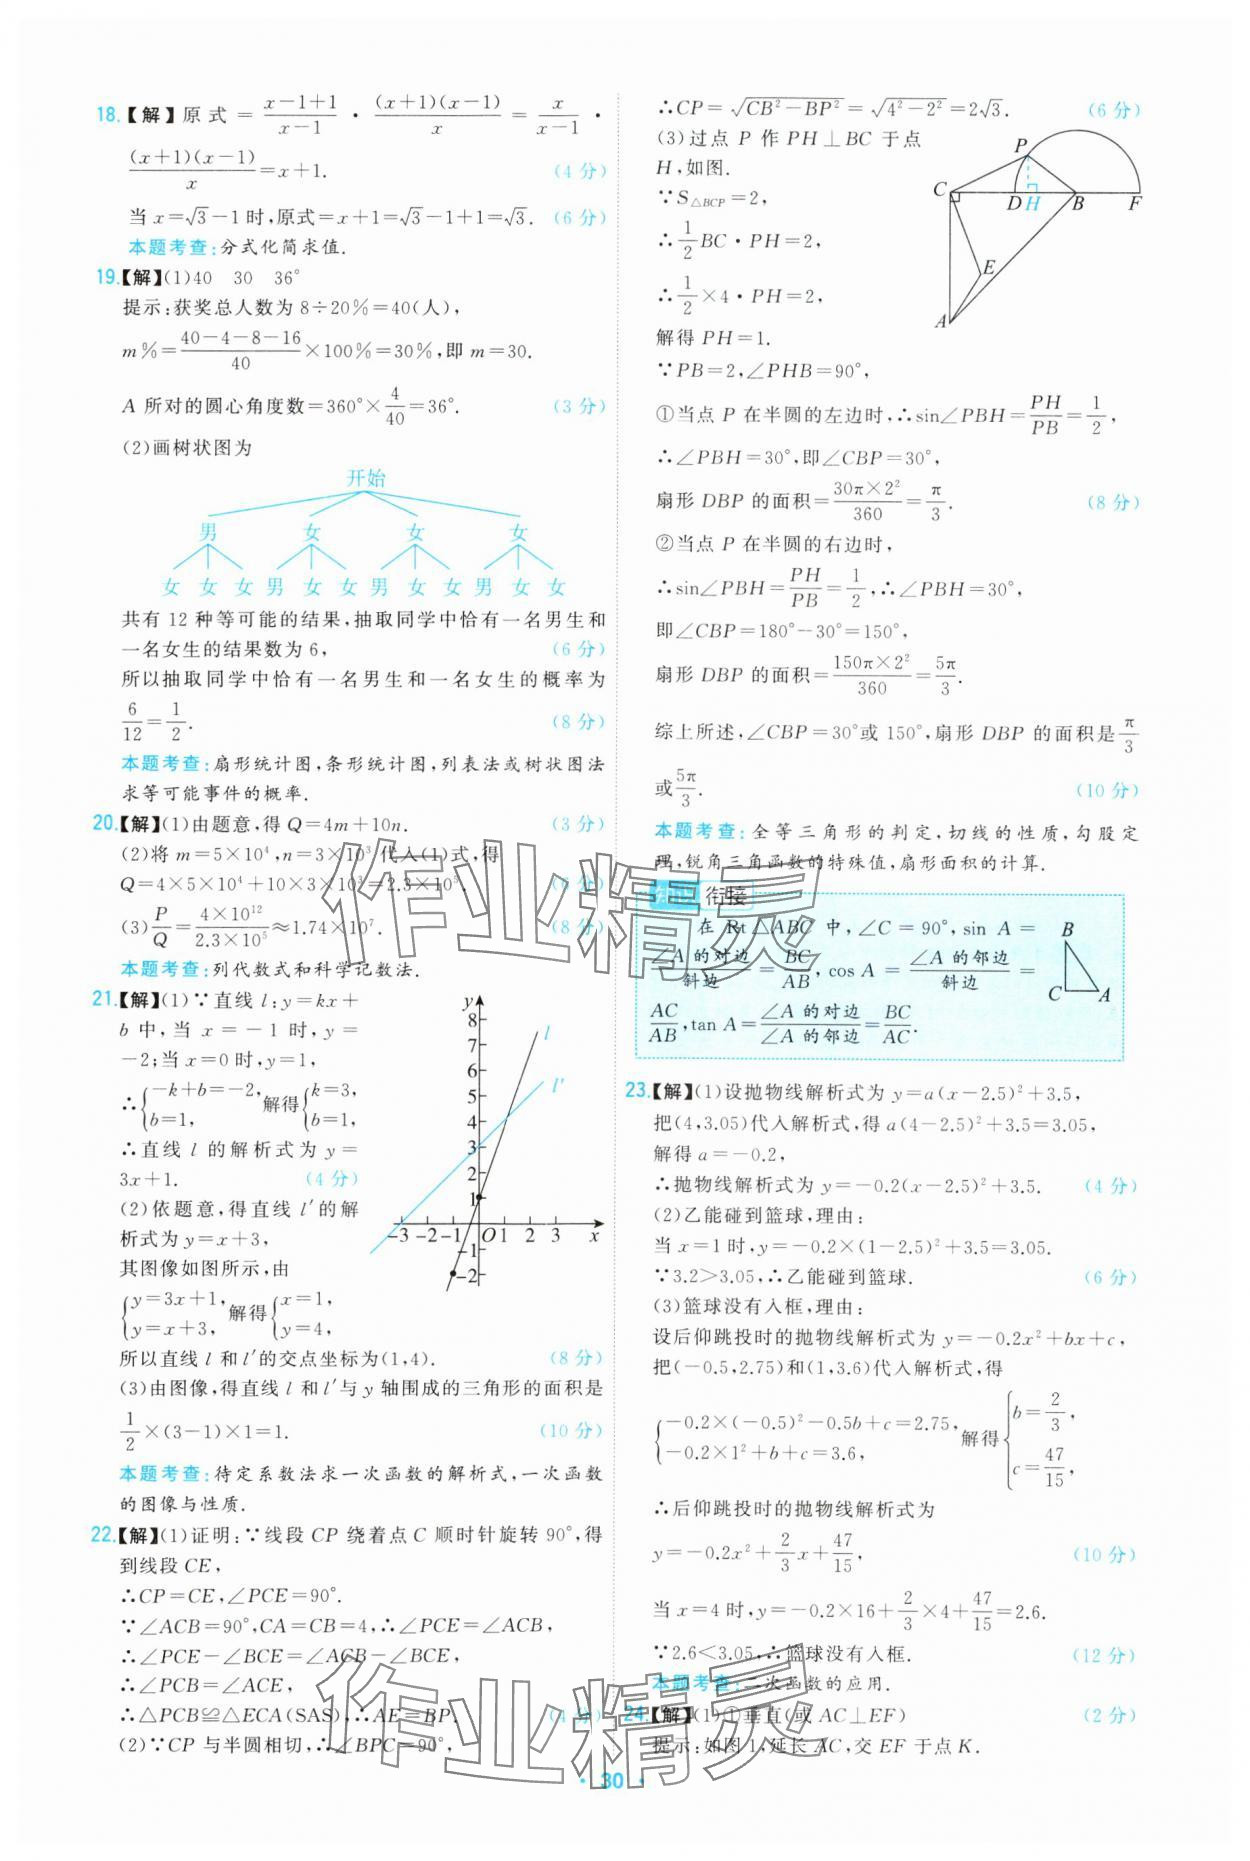 18.【解】原式=\frac{x-1+1}{x-1}·\frac{(x+1)(x-1)}{x}=\frac{x}{x-1}·
\frac{(x+1)(x-1)}{x}=x+1. (4分)
当x=√3-1时,原式=x+1=√3-1+1=√3. (6分)
本题考查:分式化简求值.
19.【解】(1)40 30 36°
提示:获奖总人数为8÷20%=40(人),
m%=\frac{40-4-8-16}{40}×100%=30%,即m=30.
A所对的圆心角度数=360°×\frac{4}{40}=36°. (3分)
(2)画树状图为
开始
男 女 女 女
女 女 女 男 女 女 男 女 女 男 女 女
共有12种等可能的结果,抽取同学中恰有一名男生和
一名女生的结果数为6, (6分)
所以抽取同学中恰有一名男生和一名女生的概率为
\frac{6}{12}=\frac{1}{2}. (8分)
本题考查:扇形统计图,条形统计图,列表法或树状图法
求等可能事件的概率.
20.【解】(1)由题意,得Q=4m+10n. (3分)
(2)将m=5×10⁴,n=3×10³代入(1)式,得
Q=4×5×10⁴+10×3×10³=2.3×10⁵. (6分)
(3)\frac{P}{Q}=\frac{4×10¹²}{2.3×10⁵}≈1.74×10⁷. (8分)
本题考查:列代数式和科学记数法.
21.【解】(1)∵直线l:y=kx+
b中,当x=-1时,y=
-2;当x=0时,y=1,
∴{-k+b=-2, b=1, 解得{k=3, b=1,
∴直线l的解析式为y=
3x+1. (4分)
(2)依题意,得直线l′的解
析式为y=x+3,
其图像如图所示,由
{y=3x+1, y=x+3, 解得{x=1, y=4,
y
8
7
6
5
4
3
2
1
-1
-2
l
l′
-3 -2 -1 O 1 2 3 x
所以直线l和l′的交点坐标为(1,4). (8分)
(3)由图像,得直线l和l′与y轴围成的三角形的面积是
\frac{1}{2}×(3-1)×1=1. (10分)
本题考查:待定系数法求一次函数的解析式,一次函数
的图像与性质.
22.【解】(1)证明:∵线段CP绕着点C顺时针旋转90°,得
到线段CE,
∴CP=CE,∠PCE=90°.
∵∠ACB=90°,CA=CB=4,∴∠PCE=∠ACB,
∴∠PCE-∠BCE=∠ACB-∠BCE,
∴∠PCB=∠ACE,
∴△PCB≌△ECA(SAS),∴AE=BP. (4分)
(2)∵CP与半圆相切,∴∠BPC=90°,
∴CP=\sqrt{CB²-BP²}=\sqrt{4²-2²}=2√3. (6分)
(3)过点P作PH⊥BC于点
H,如图.
∵S△BCP=2,
∴\frac{1}{2}BC·PH=2,
∴\frac{1}{2}×4·PH=2,
P
C D H B F
E
A
解得PH=1.
∵PB=2,∠PHB=90°,
①当点P在半圆的左边时,∴sin∠PBH=\frac{PH}{PB}=\frac{1}{2},
∴∠PBH=30°,即∠CBP=30°,
扇形DBP的面积=\frac{30π×2²}{360}=\frac{π}{3}. (8分)
②当点P在半圆的右边时,
∴sin∠PBH=\frac{PH}{PB}=\frac{1}{2},∴∠PBH=30°,
即∠CBP=180°-30°=150°,
扇形DBP的面积=\frac{150π×2²}{360}=\frac{5π}{3}.
综上所述,∠CBP=30°或150°,扇形DBP的面积是\frac{π}{3}
或\frac{5π}{3}. (10分)
本题考查:全等三角形的判定,切线的性质,勾股定
理,锐角三角函数的特殊值,扇形面积的计算.
衔接
在Rt△ABC中,∠C=90°,sin A=
\frac{∠A的对边}{斜边}=\frac{BC}{AB},cos A=\frac{∠A的邻边}{斜边}=
\frac{AC}{AB},tan A=\frac{∠A的对边}{∠A的邻边}=\frac{BC}{AC}.
B
C A
23.【解】(1)设抛物线解析式为y=a(x-2.5)²+3.5,
把(4,3.05)代入解析式,得a(4-2.5)²+3.5=3.05,
解得a=-0.2,
∴抛物线解析式为y=-0.2(x-2.5)²+3.5. (4分)
(2)乙能碰到篮球,理由:
当x=1时,y=-0.2×(1-2.5)²+3.5=3.05.
∵3.2>3.05,∴乙能碰到篮球. (6分)
(3)篮球没有入框,理由:
设后仰跳投时的抛物线解析式为y=-0.2x²+bx+c,
把(-0.5,2.75)和(1,3.6)代入解析式,得
{-0.2×(-0.5)²-0.5b+c=2.75, -0.2×1²+b+c=3.6, 解得{b=\frac{2}{3}, c=\frac{47}{15},
∴后仰跳投时的抛物线解析式为
y=-0.2x²+\frac{2}{3}x+\frac{47}{15}, (10分)
当x=4时,y=-0.2×16+\frac{2}{3}×4+\frac{47}{15}=2.6.
∵2.6<3.05,∴篮球没有入框. (12分)
本题考查:二次函数的应用.
24.【解】(1)①垂直(或AC⊥EF) (2分)
提示:如图1,延长AC,交EF于点K.
·30·
作业精灵
作业精灵